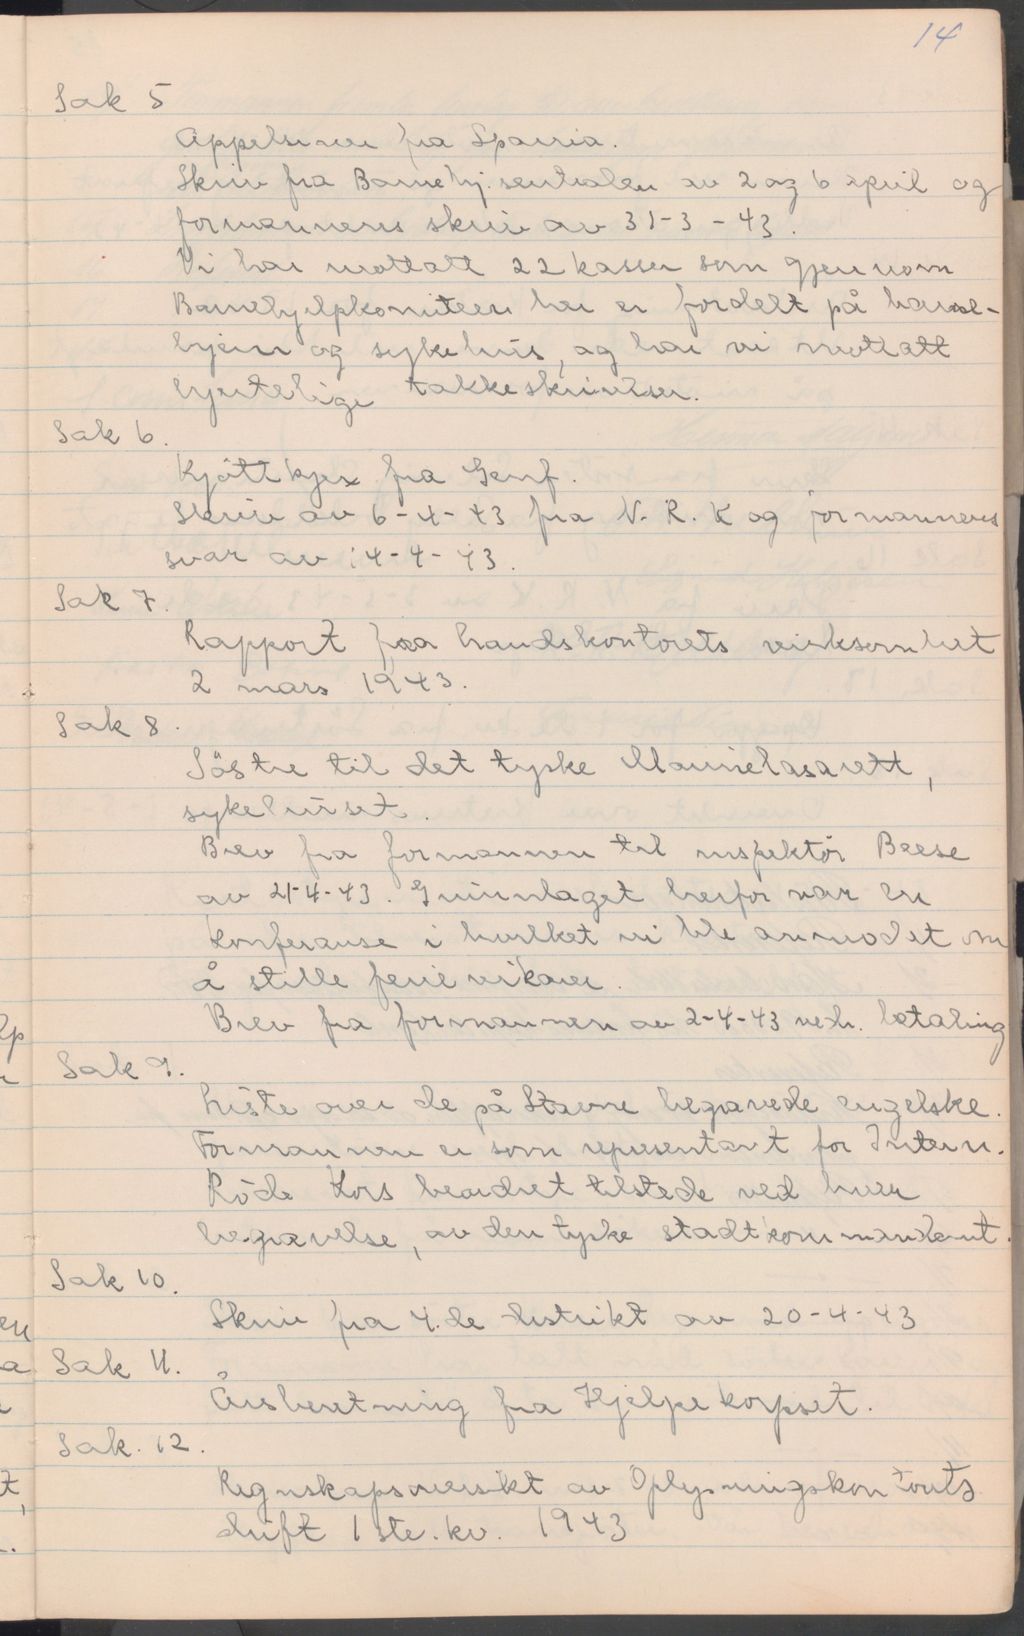 14
Sak 5
Appelsiner fra Spania.
Skriv fra Barnehj. sentralen av 2 og 6 april og
formannens skriv av 31-3-43.
Vi har mottatt 22 kasser som gjennom
Barnehjelpkomiteen her er fordelt på barne-
hjem og sykehus, og har vi mottatt
hjertelige takkeskrivelser.
Sak 6.
Kjöttkjex fra Genf.
Skriv av 6-4-43 fra N. R. K og formannens
svar av 14-4-43.
Sak 7.
Rapport fra Landskontorets virksomhet
2 mars 1943.
Sak 8.
Söstre til det tyske Marinelasarett,
sykehuset.
Brev fra formannen til inspektör Beese
av 21-4-43. Grunnlaget herfor var en
konferanse i hvilket vi ble anmodet om
å stille ferievikarer.
Brev fra formannen av 2-4-43 vedr. betaling
Sak 9.
Liste over de på Stavne begravede engelske.
Formannen er som representant for Intern.
Röde Kors beordret tilstede ved hver
begravelse, av den tyske stadtkommandant.
Sak 10.
Skriv fra 4.de distrikt av 20-4-43
Sak 11.
Årsberetning fra Hjelpekorpset.
Sak. 12.
Regnskapsoversikt av Oplysningskontorets
drift 1ste. kv. 1943